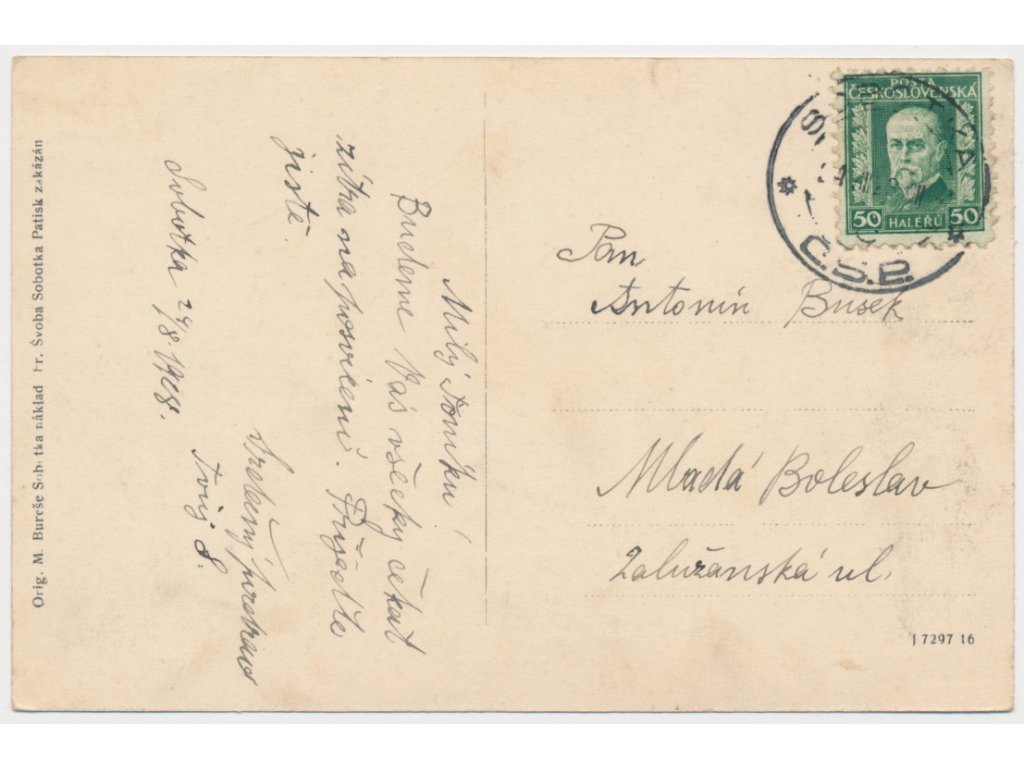 Milý Toníku!
Budeme Vás všecky čekat
zítra na posvícení. Přijeďte
jistě.
Srdečný pozdrav
Tvůj S.
Sobotka 24/8. 1928.
Orig. M. Bureše Sobotka náklad Fr. Švoba Sobotka Patisk zakázán
POŠTA
ČESKOSLOVENSKÁ
50 HALÉŘŮ 50
Č.S.P.
Pan
Antonín Bušek
Mladá Boleslav
Zalužánská ul.
J 7297 16